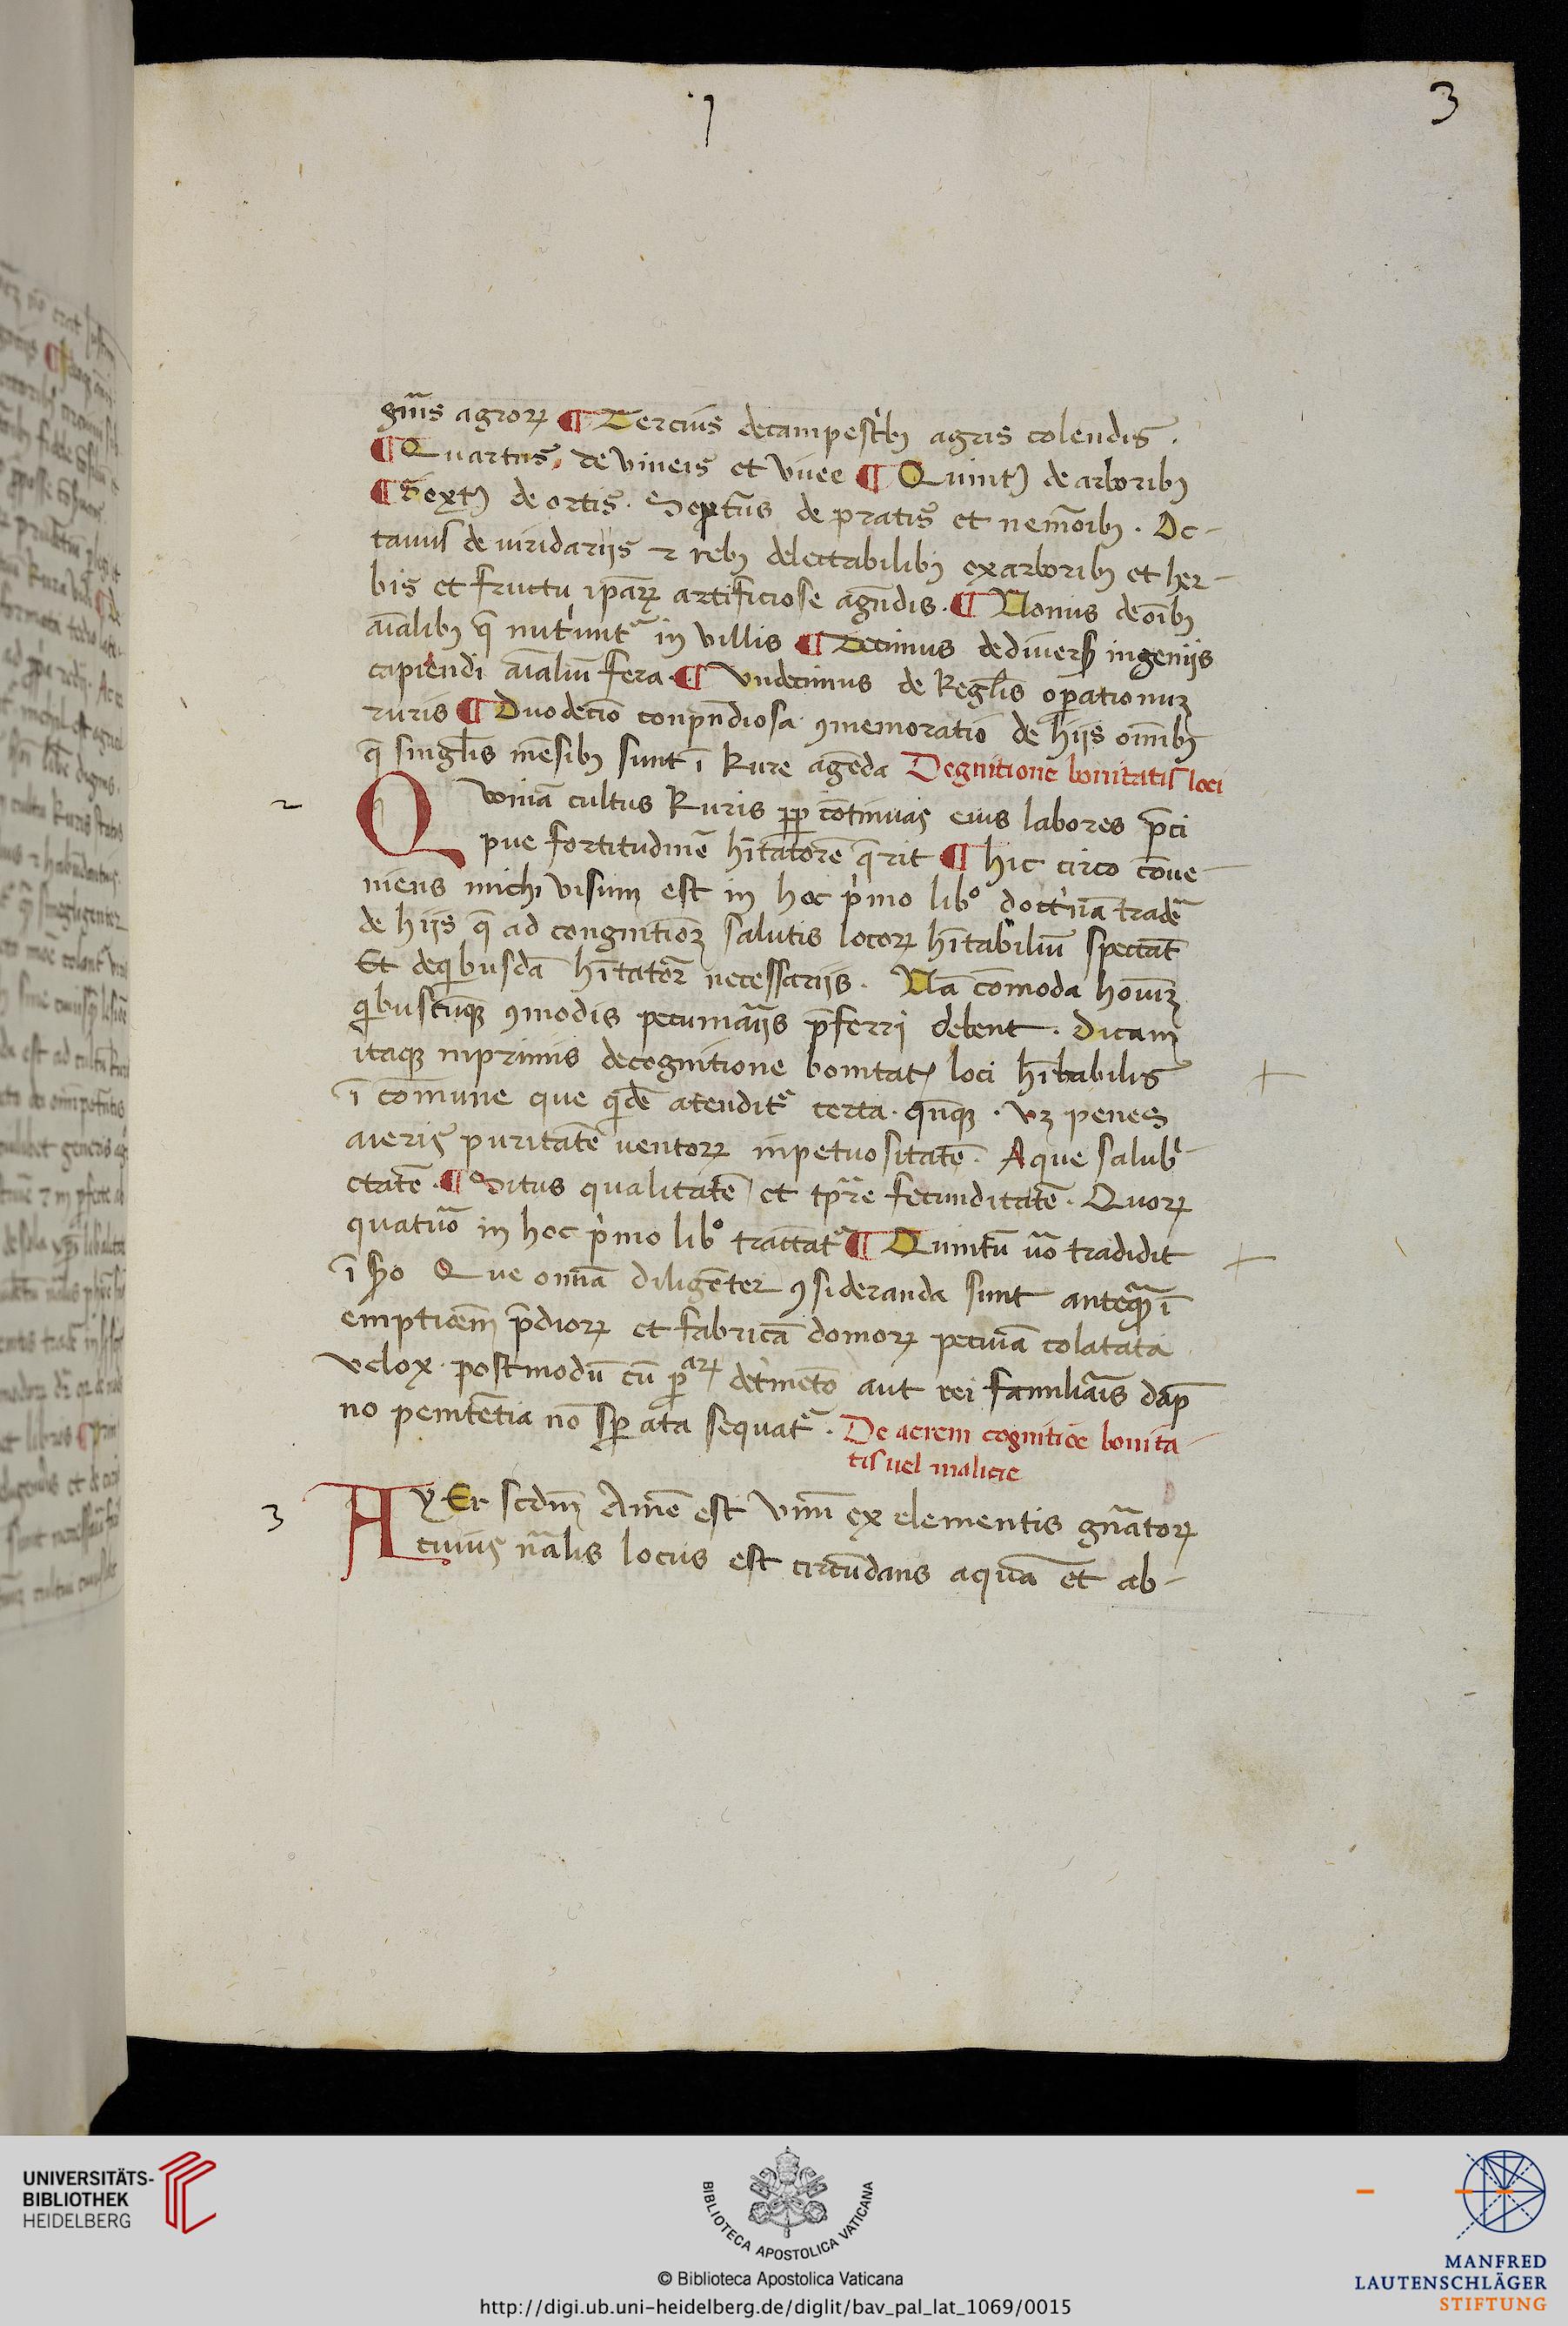 1
3
gñis agroꝝ ¶ Tercius de campestꝰbꝫ agris colendis .
¶ Quartus, de vineis et vuee ¶ Quintꝰ de arboribꝫ
¶ Sextꝰ de ortis . Septim̄s de pratis et nem̄oribꝫ . Oc-
tauus de uiridariis ⁊ rebꝫ delectabilibꝫ ex arboribꝫ et her-
bis et fructu ip̄aꝝ artificiose agēdis . ¶ Nonus de oībꝫ
aīalibꝫ q̄ nut'unt᷑ in villis ¶ Decimus de diuers̄ ingenijs
capiendi aīaliū fera ¶ Vndecimus de Regl̄is op̲ationuꝫ
ruris ¶ Duodecīo conpn̄diosa ꝯmemoratio de hijs omībꝫ
q̄ singl̄is mēsibꝫ sunt ī Rure agēda De gnitione bonitatis loci
2
Quoniā cultus Ruris ꝓp̲ cōtinuas eius labores p̄ci
pue fortitudinē hītatorē q̄rit ¶ hic circo cōue-
niens michi visum est in hoc p'mo libº doct'nā tradē
de hijs q̄ ad congnitiōꝫ salutis locoꝝ hītabiliū spectāt
Et de q'busdā hītatoꝝ necessarijs . Nā cōmoda hōuiꝫ
q'buscūqꝫ ꝯmodis pecuniarijs p̄ferri debent . Dicam
itaqꝫ inprimis de cognitione bonitatꝭ loci hītabilis
ī comune que q'dē atendit᷑ certa . qn̄qꝫ . vꝫ penes
aieris puritatē uentoꝝ inpetuositatē . Aque salub'-
ctatē . ¶ Situs qualitatē et tp̄rre fecunditatē . Quoꝝ
quatuō in hoc p'mo libº tractat᷑ ¶ Quintū uō tradidit
ī sꝫo Que omīa diligēter ꝯsideranda sunt anteqᷓ ī
emptiōem p̄dioꝝ et fabricā domoꝝ pecuīa colatata
velox . postmodū cū p̲aꝝ det'mēto aut rei familiāis dap̄
no penitētia nō sp̲ata sequat᷑ . De aerem cognitiōe bonita-
tis uel malicie
3
AyEr scdm̄ Auicē est vnū ex elementis gn̄atoꝝ
cuius nālis locus est circūdans aquā et ab-
UNIVERSITÄTS-
BIBLIOTHEK
HEIDELBERG
BIBLIOTECA APOSTOLICA VATICANA
© Biblioteca Apostolica Vaticana
http://digi.ub.uni-heidelberg.de/diglit/bav_pal_lat_1069/0015
MANFRED
LAUTENSCHLÄGER
STIFTUNG